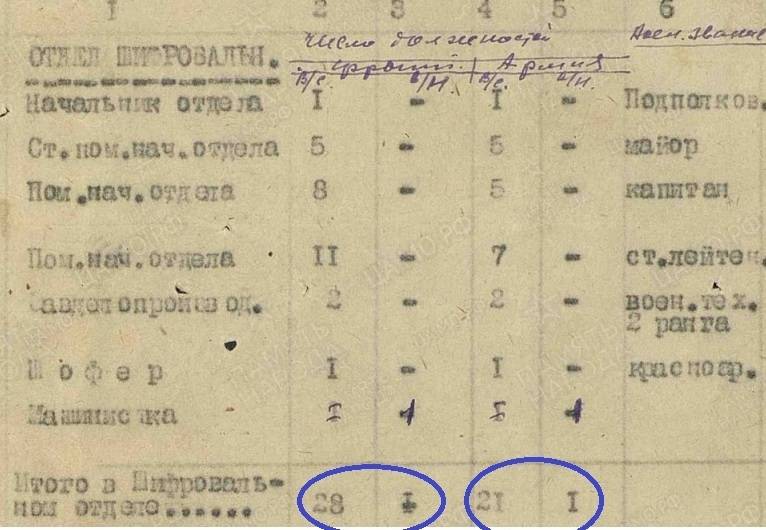 I 2 3 4 5 6
число должностей Воен. звание
ОТДЕЛ ШИФРОВАЛЬН. фронт. Армия
в/с. в/н. в/с. в/н.
Начальник отдела I - I - Подполков.
Ст.пом.нач.отдела 5 - 5 - майор
Пом.нач.отдела 8 - 5 - капитан
Пом.нач.отдела II - 7 - ст.лейтен.
Завделопроизвод. 2 - 2 - воен.тех.
2 ранга
Шофер I - I - красноар.
Машинистка I 1 I 1
Итого в Шифроваль-
ном отделе...... 28 I 2I I